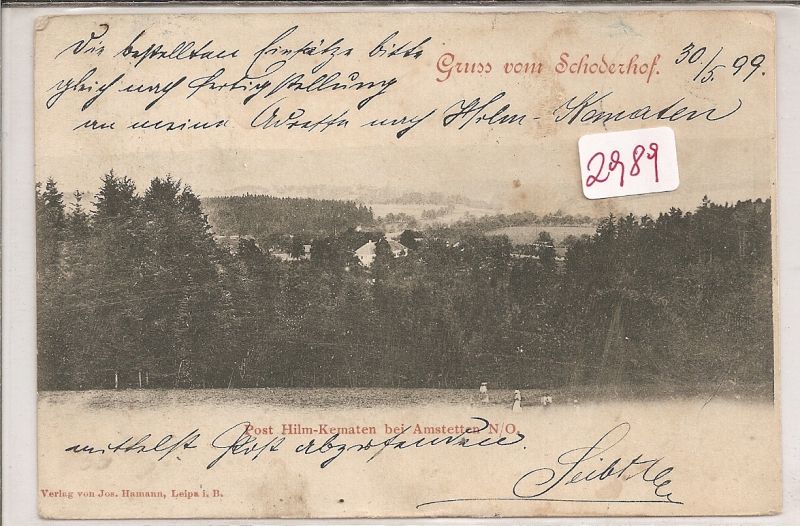 Die bestellten Einsätze bitte
Gruss vom Schoderhof.
30./5. 99.
gleich nach fertigstellung
an meine Adresse nach Hilm-Kematen
2989
Post Hilm-Kematen bei Amstetten N/O.
mittelst Post abzusenden.
Verlag von Jos. Hamann, Leipa i. B.